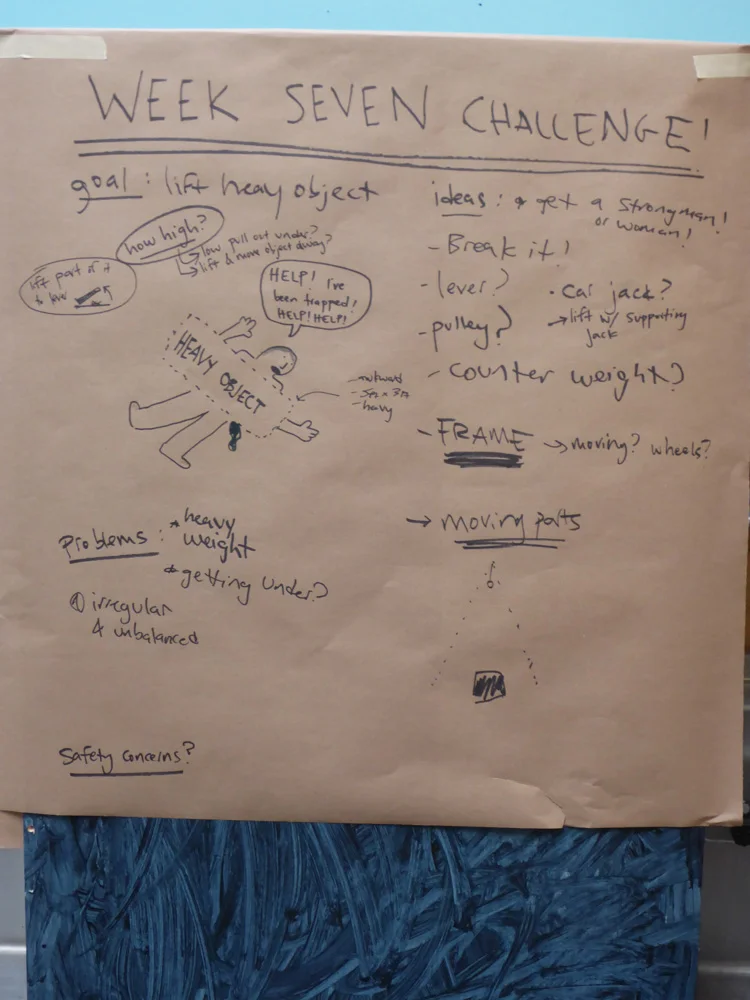 WEEK SEVEN CHALLENGE!
goal: lift heavy object
how high?
→ low pull out under?
→ lift & move object away?
lift part of it
HELP! I've
been trapped!
HELP! HELP!
HEAVY OBJECT
- awkward
- heavy
Problems: * heavy
weight
* getting under?
irregular
& unbalanced
Safety concerns?
ideas: * get a strongman!
or woman!
- Break it!
- lever?
- pulley?
- counter weight?
• car jack?
→ lift w/ supporting
jack
- FRAME → moving? wheels?
→ moving parts